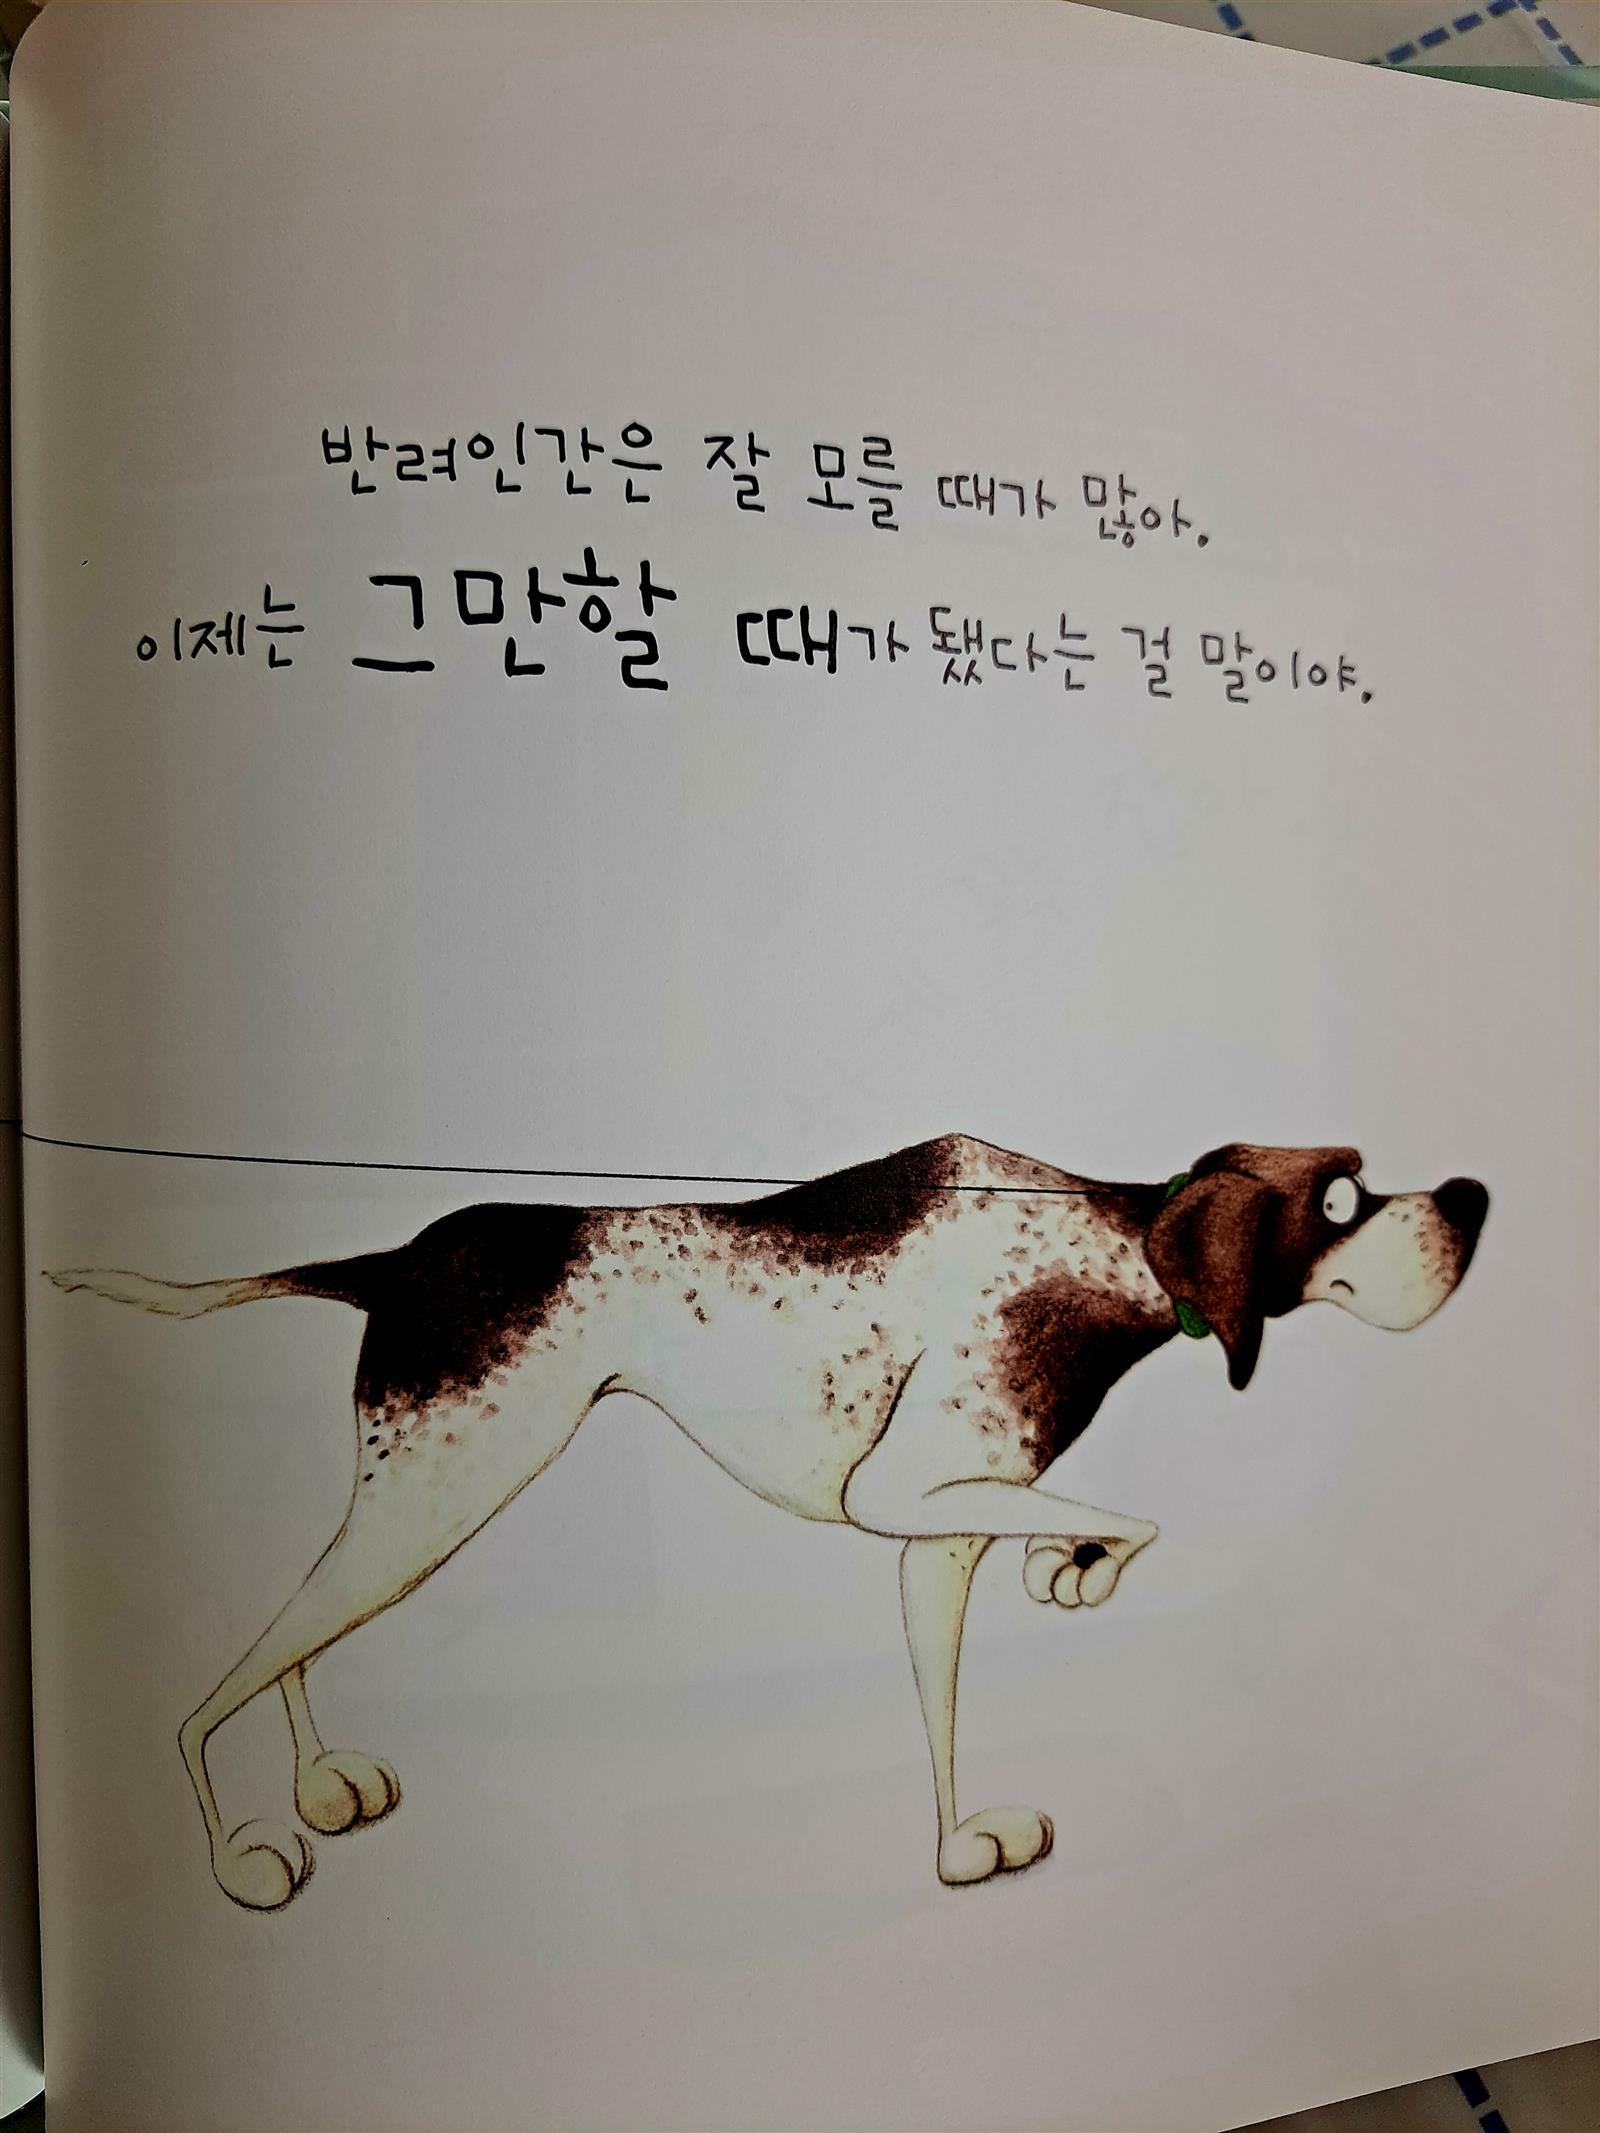 반려인간은 잘 모를 때가 많아.
이제는 그만할 때가 됐다는 걸 말이야.